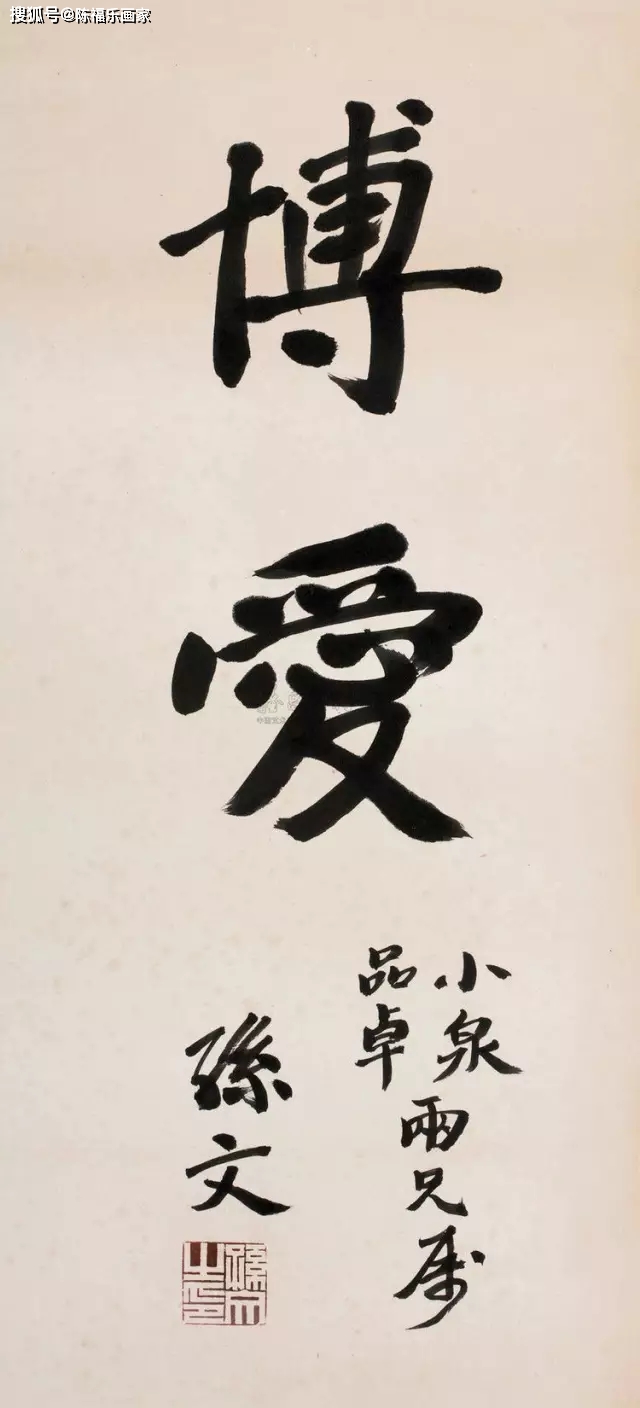 搜狐号@陈福乐画家
博愛
小泉
品卓
兩兄属
孫文
孫文之印